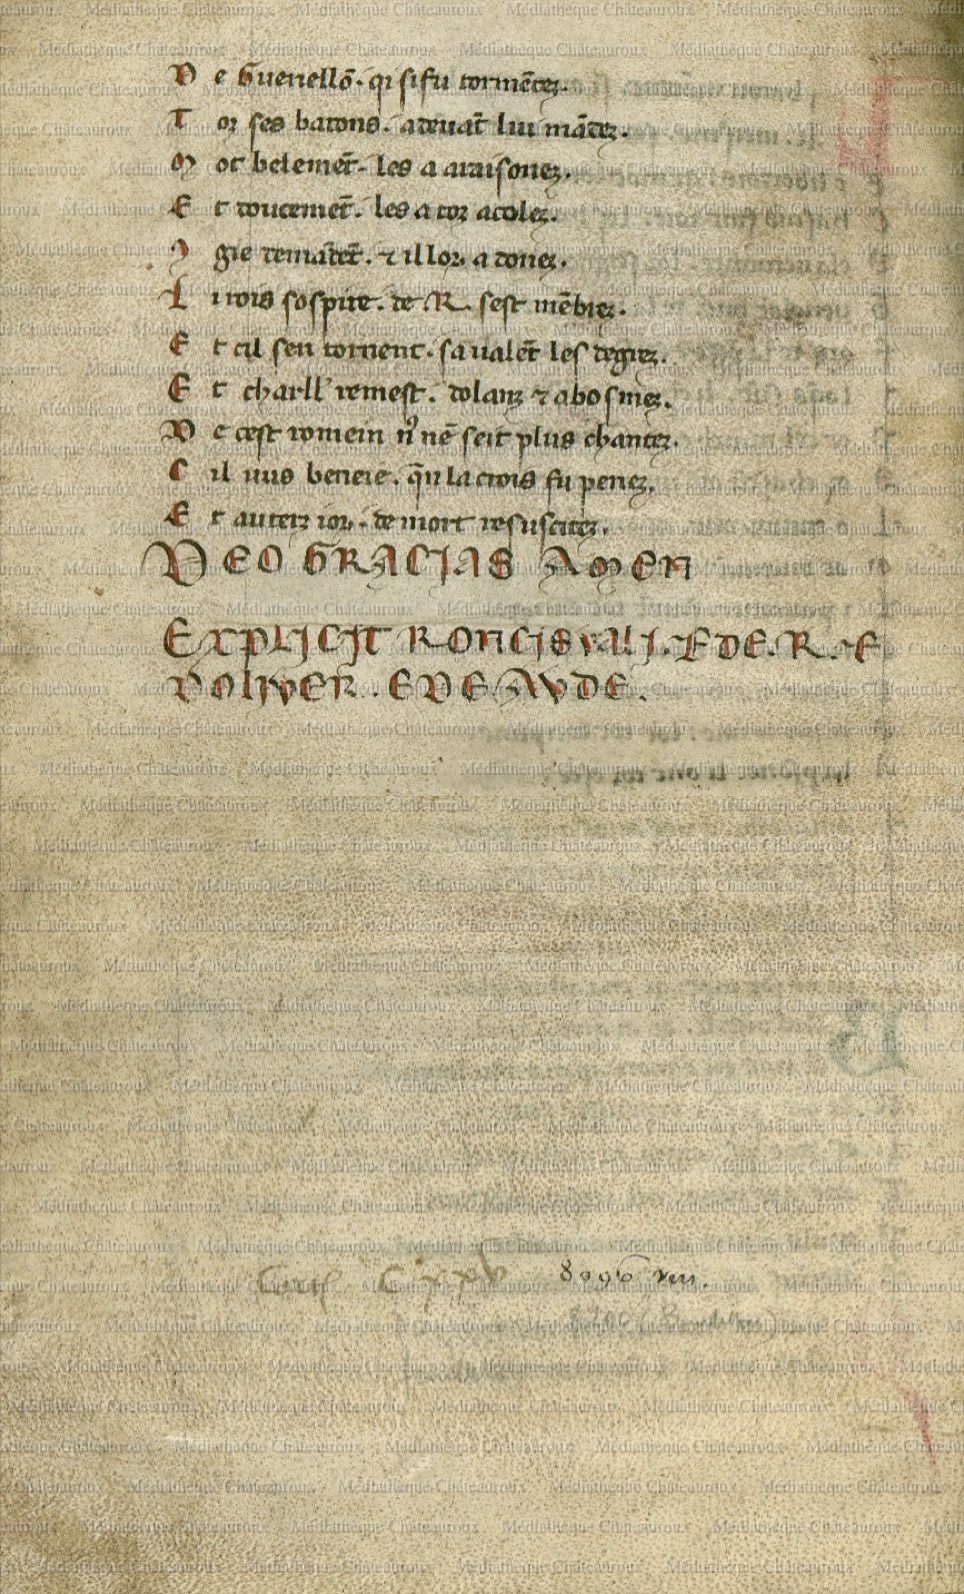 D e Guenellō. qi si fu tormētez.
T oz ses barons. a deuāt lui mādez.
M ot belemēt. les a araisonez.
E t doucemēt. les a toz acolez.
C gie demādēt. ⁊ il lor a donez.
L i rois sospire. de .R. sest mēbrez.
E t cil sen tornent. sa ualēt les degrez.
E t charll' remest. dolanz ⁊ abosmez.
D e cest romein nͦ nē seit plus chantez.
C il uus beneie. q̄n la crois fu penez.
E t au terz ior. de mort resuscitez.
DEO GRACIAS AMEN
EXPLICIT RONCISVALI. E DE. R. E
D OLIVER. E DE AVDE.